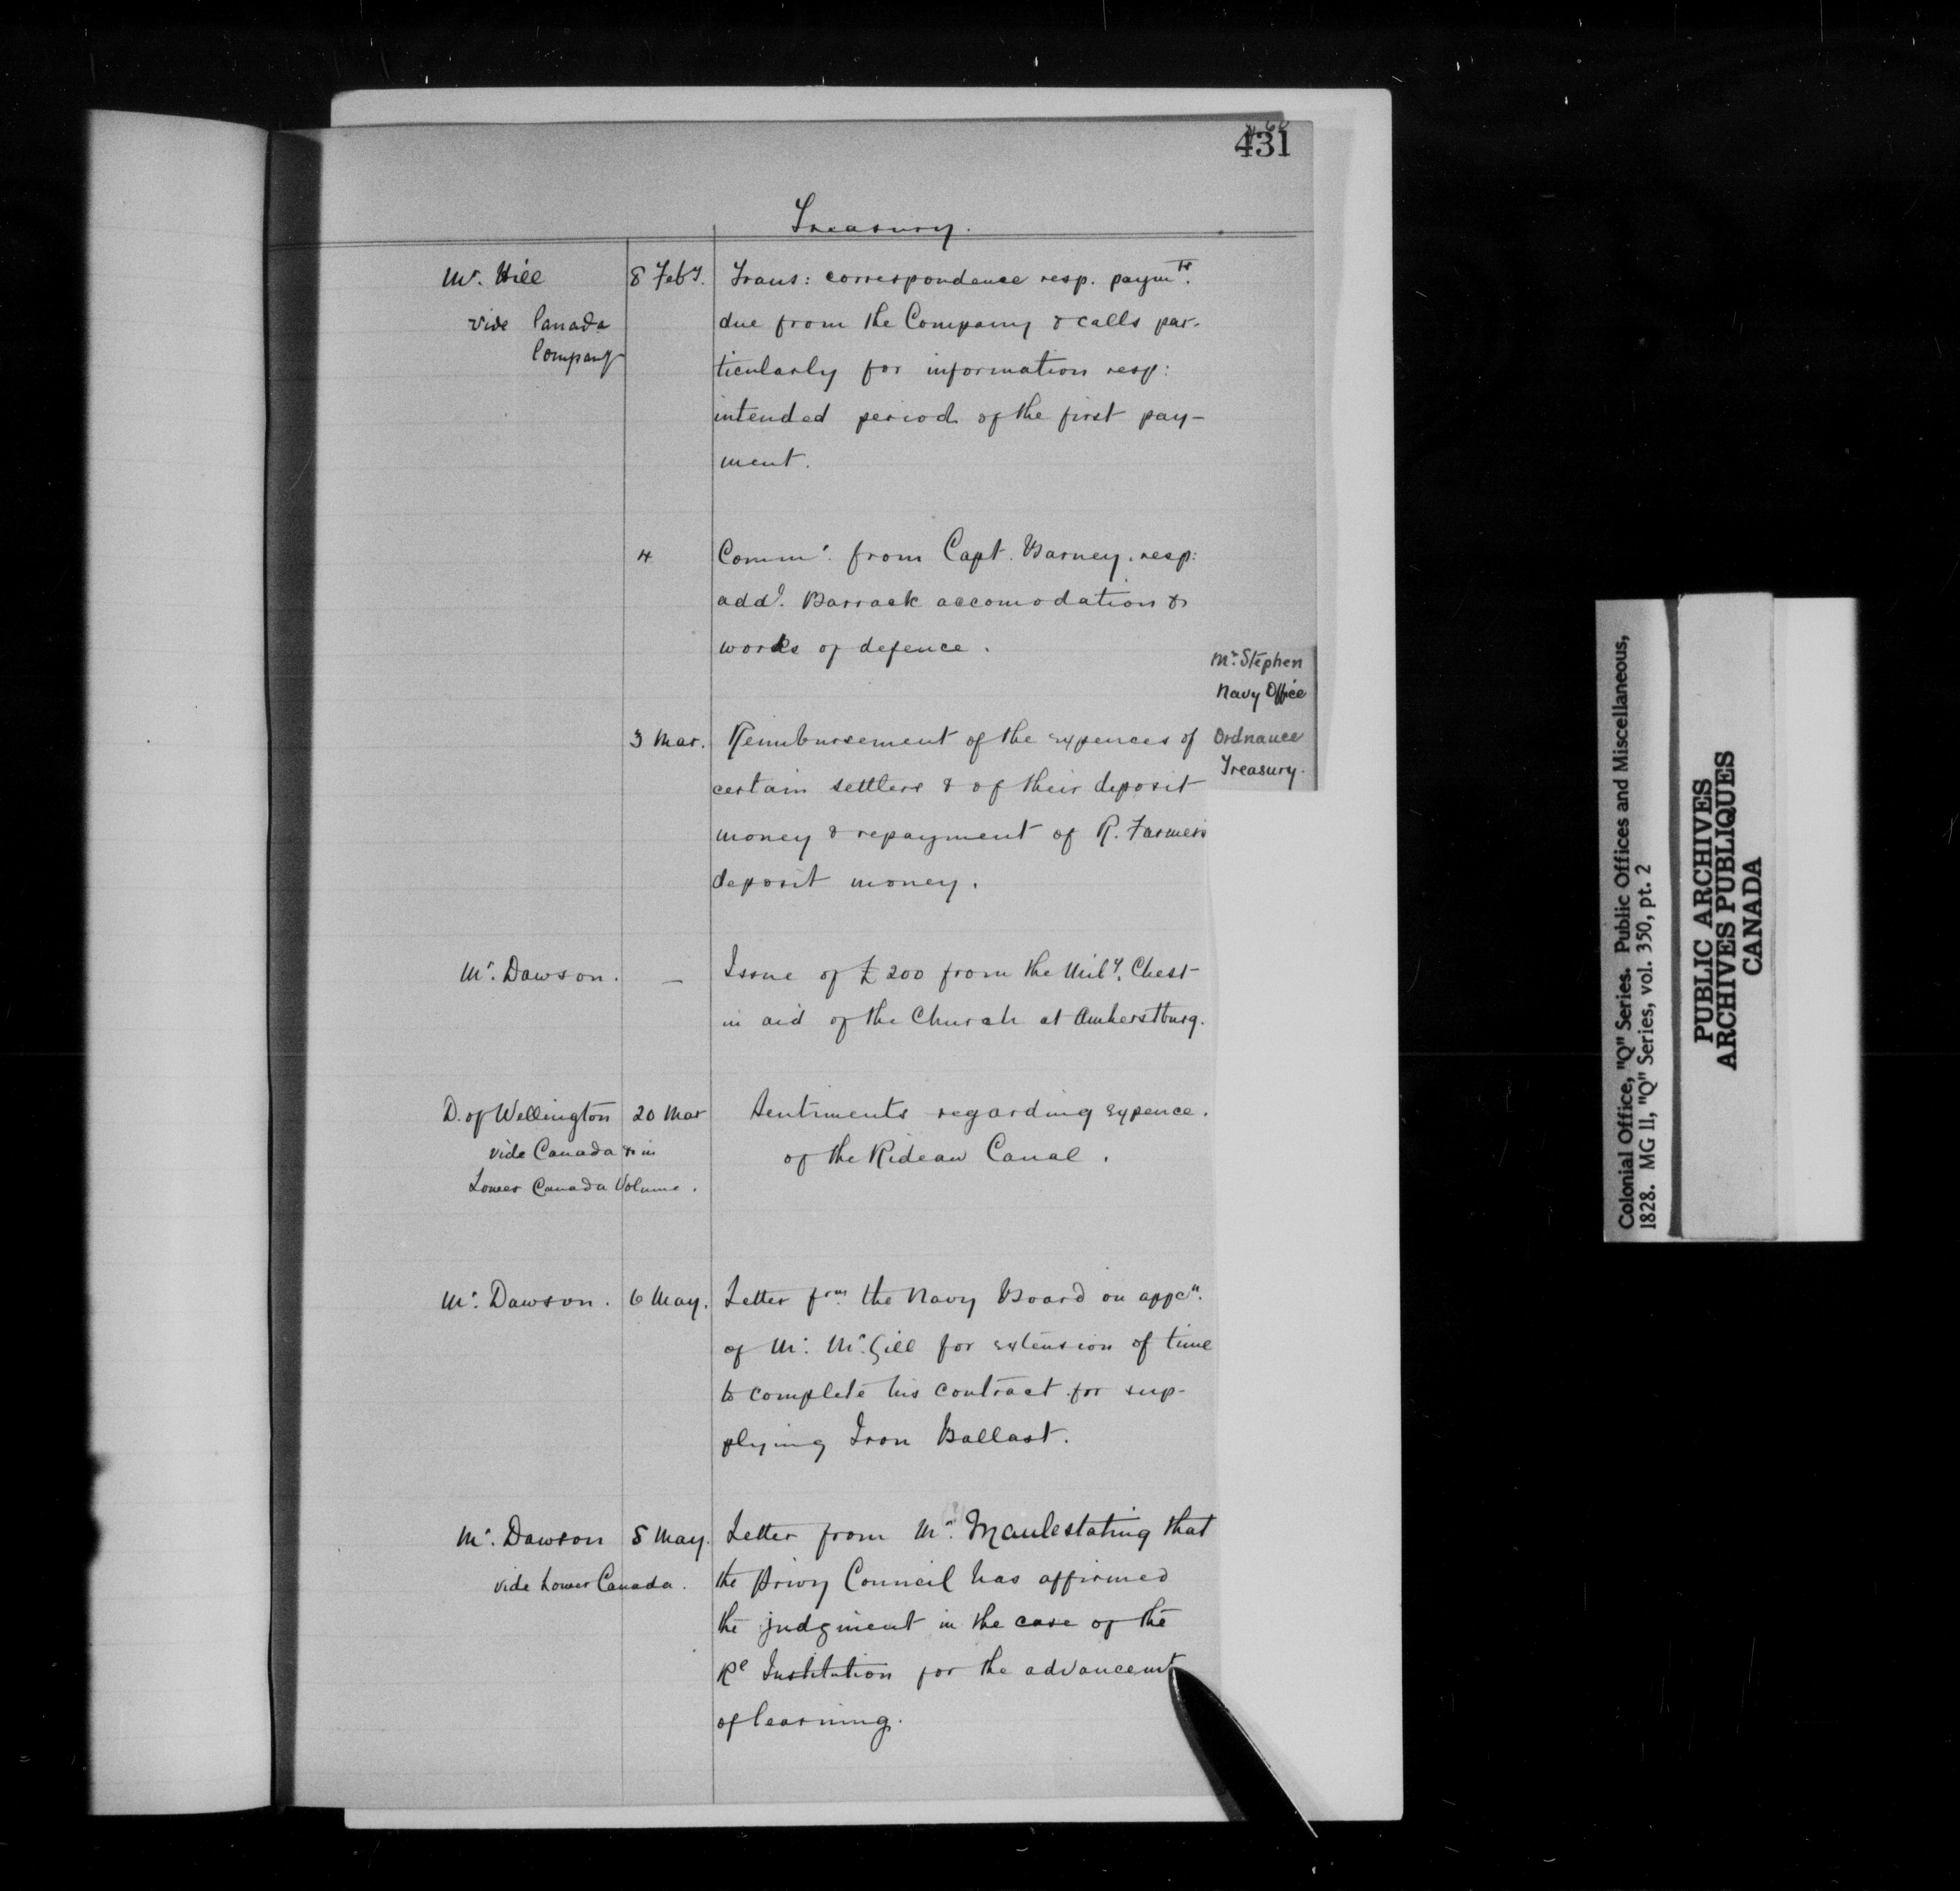 431
Treasury.
Mr. Hill 8 Feby. Trans: correspondence resp. paymts.
vide Canada due from the Company & calls par-
Company ticularly for information resp:
intended period of the first pay-
ment.
4 Commn. from Capt. Barney. resp:
addl. Barrack accomodation &
works of defence.
Mr. Stephen
Navy Office
Ordnance
Treasury.
3 Mar. Reimbursement of the expences of
certain settlers & of their deposit
money & repayment of R. Farmers
deposit money.
Mr. Dawson. — Issue of £200 from the Mily. Chest
in aid of the Church at Amherstburg.
D. of Wellington 20 Mar Sentiments regarding expence.
vide Canada & in of the Rideau Canal.
Lower Canada Volume.
Mr. Dawson. 6 May. Letter frm the Navy Board on appcn.
of Mr. McGill for extension of time
to complete his contract for sup-
plying Iron Ballast.
Mr. Dawson 8 May. Letter from Mr. Maule stating that
vide Lower Canada. the Privy Council has affirmed
the judgment in the case of the
Rl Institution for the advancemt
of learning.
Colonial Office, "Q" Series. Public Offices and Miscellaneous,
1828. MG 11, "Q" Series, vol. 350, pt. 2
PUBLIC ARCHIVES
ARCHIVES PUBLIQUES
CANADA